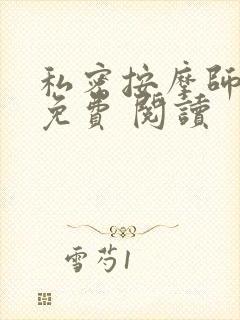 私密按摩師
免費 閱讀
雪芍1